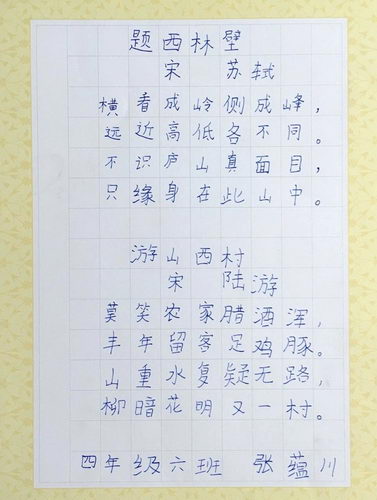 题西林壁
宋 苏轼
横看成岭侧成峰，
远近高低各不同。
不识庐山真面目，
只缘身在此山中。
游山西村
宋 陆游
莫笑农家腊洒浑，
丰年留客足鸡豚。
山重水复疑无路，
柳暗花明又一村。
四年级六班 张蕴川